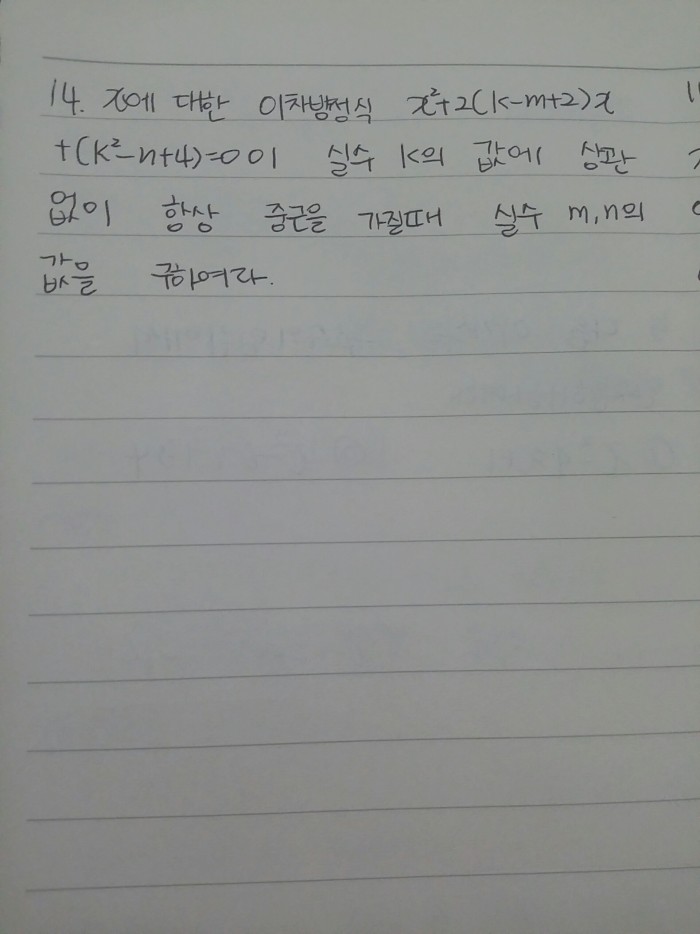 14. x에 대한 이차방정식 x²+2(k-m+2)x
+(k²-n+4)=0 이 실수 k의 값에 상관
없이 항상 중근을 가질때 실수 m,n의
값을 구하여라.